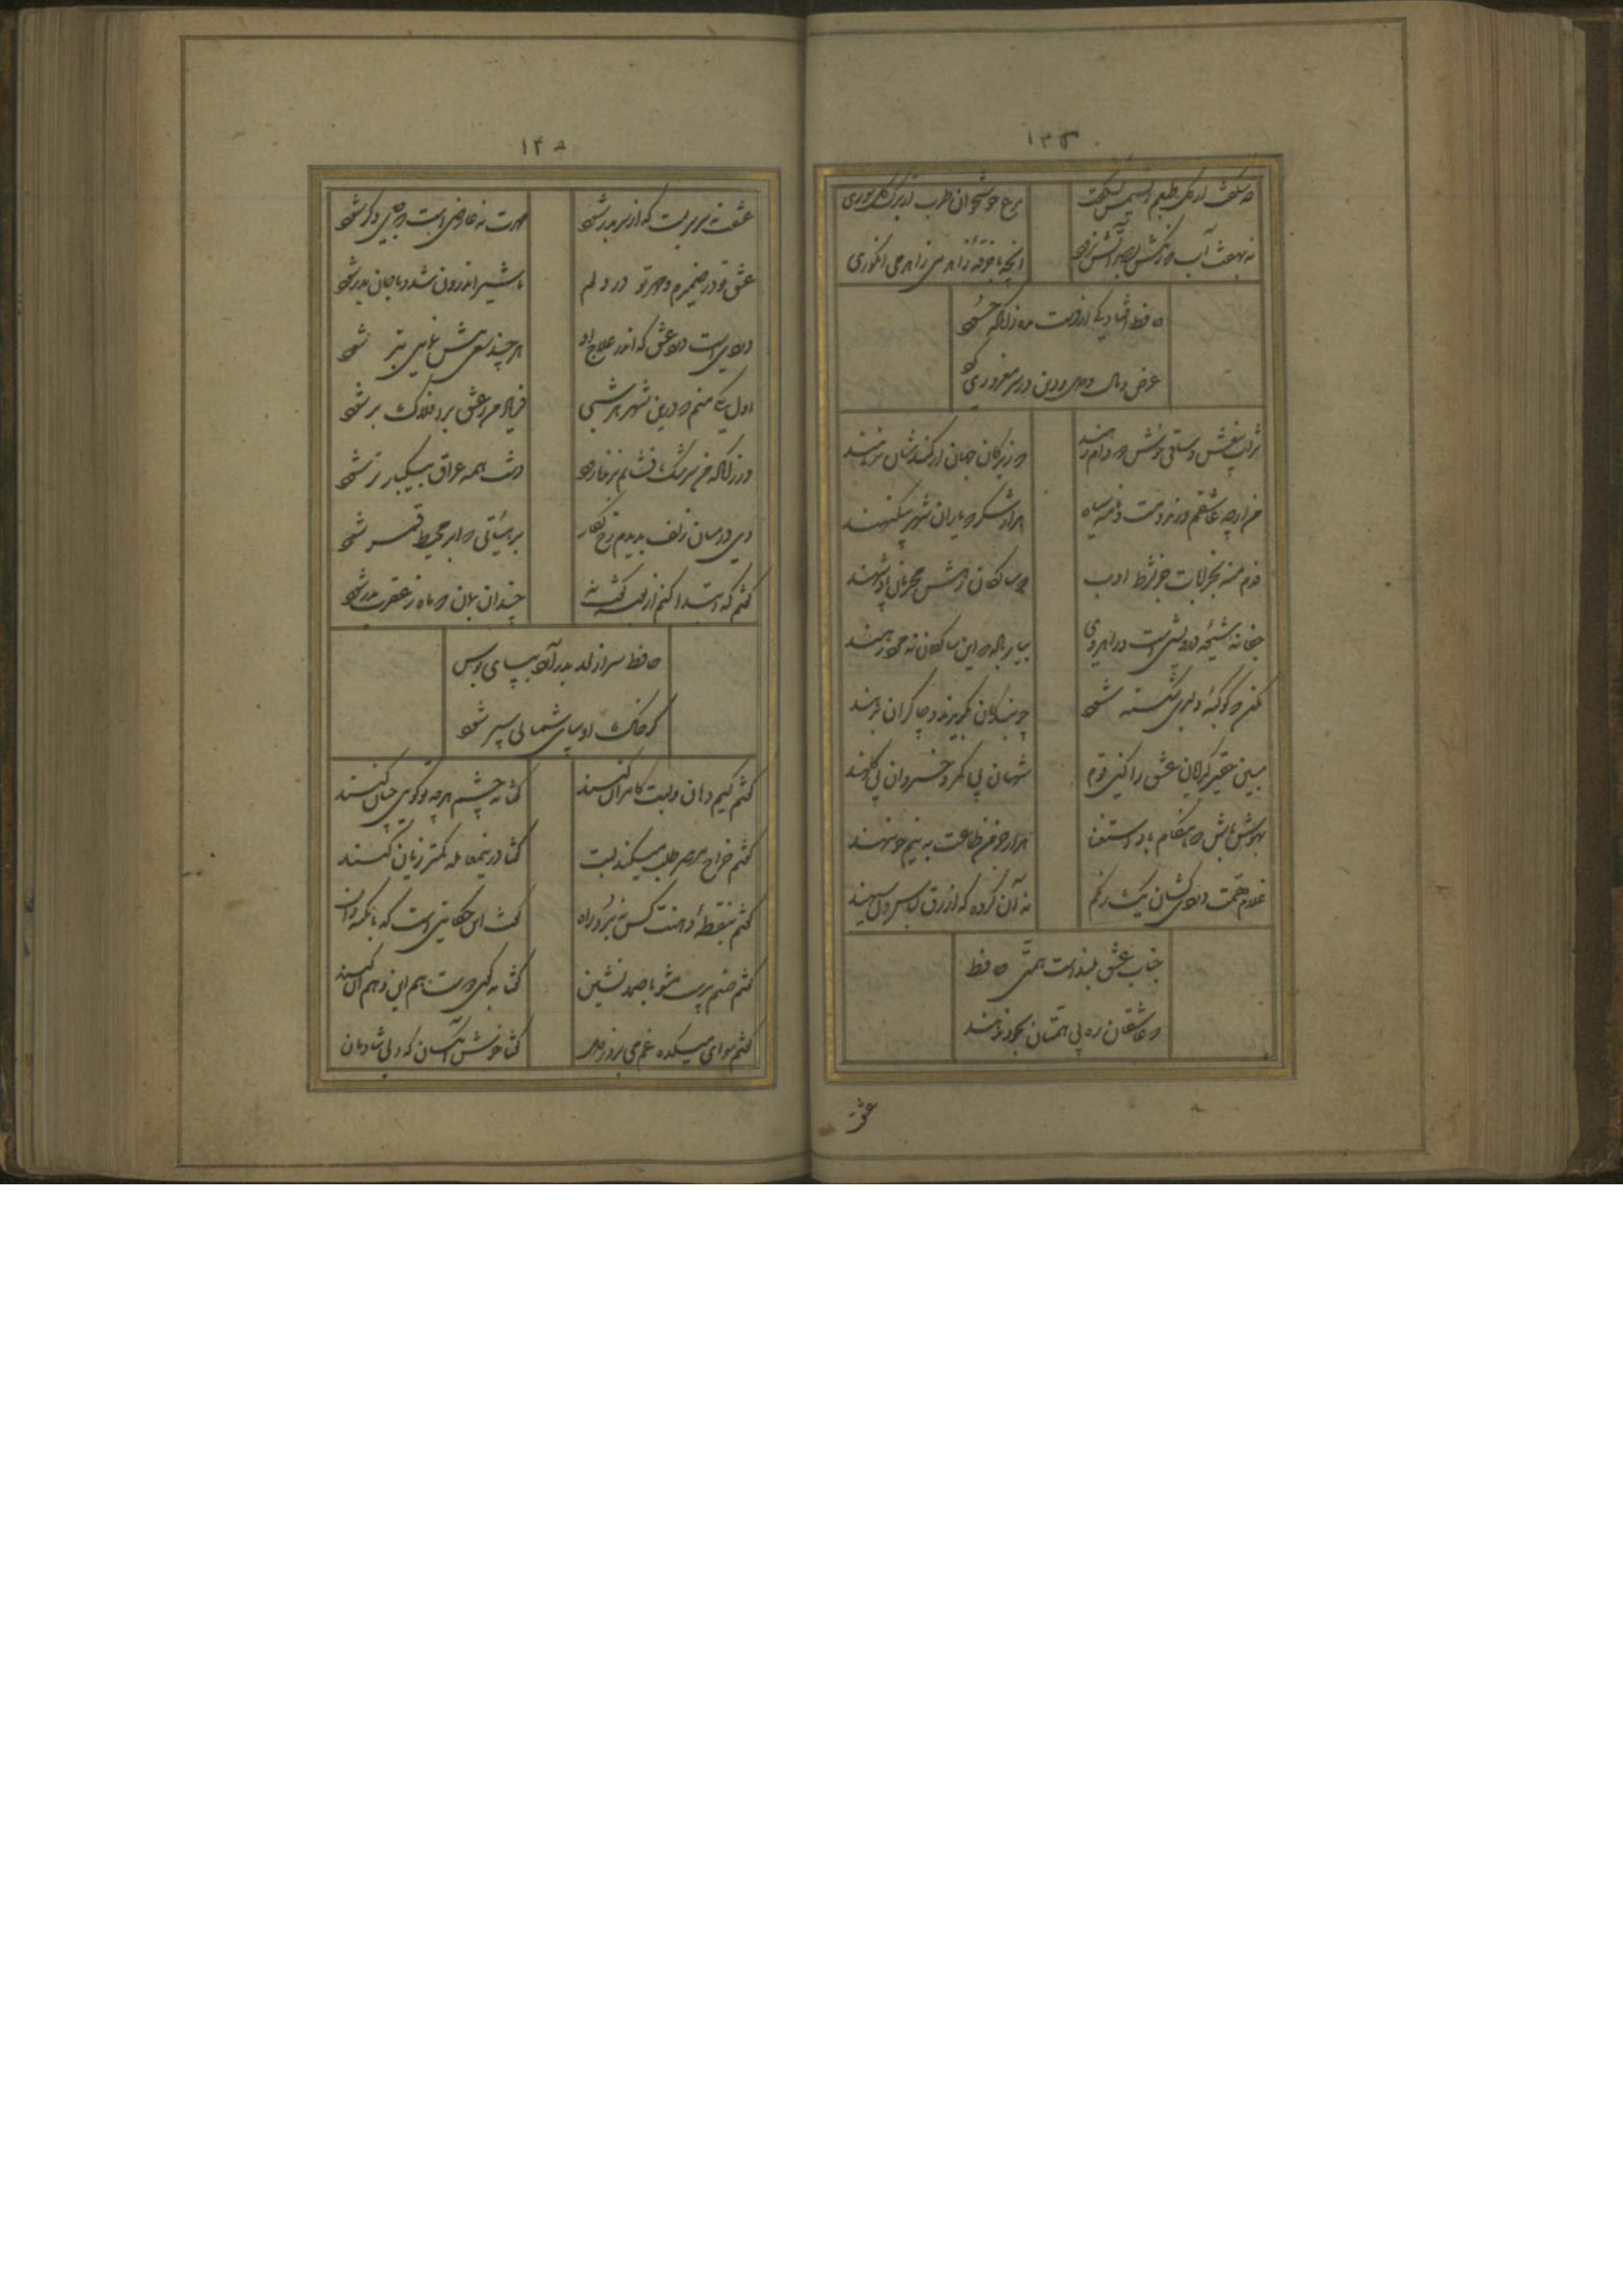 مرغ خوشخوان طرب از برک گل سوری
نه بهفت آب که رنکش بصد آتش نرود
آنچه با خرقه زاهد می انکوری
حافظ افتادکی از دست مده زانکه حسود
عرض و مال و دل و دین در سر مغروری
شراب بیغش و ساقی خوش دو دام رهند
که زیرکان جهان از کمندشان نرهند
من ارچه عاشقم و رند و مست و نامه سیاه
هزار شکر که یاران شهر بیکنهند
قدم منه بخرابات جز بشرط ادب
که ساکنان درش محرمان پادشهند
جفا نه شیوهٔ درویشی است و راهروی
بیار باده که این سالکان نه مرد رهند
مکن که کوکبهٔ دلبری شکسته شود
چو بندکان بکریزند و چاکران بجهند
مبین حقیر کدایان عشق را کین قوم
شهان بی کمر و خسروان بی کلهند
بهوش باش که هنکام باد استغنا
هزار خرمن طاعت به نیم جو ننهند
غلام همت دردی کشان یک رنکم
نه آن کروه که ازرق لباس و دل سیهند
جناب عشق بلند است همتی حافظ
که عاشقان ره بی همتان بخود ندهند
عشق
عشقت نه سرسریست که از سر بدر شود
مهرت نه عارضی است که جای دکر شود
عشق تو در ضمیرم و مهر تو در دلم
با شیر اندرون شد و با جان بدر شود
دردیست درد عشق که اندر علاج او
هر چند سعی بیش نمایی بتر شود
اول یکی منم که درین شهر هر شبی
فریاد من ز عشق بر افلاک بر شود
ور زانکه من سرشک فشانم بزنده رود
کشت همه عراق بیکبار تر شود
دی در میان زلف بدیدم رخ نکار
بر هیئتی که ابر محیط قمر شود
کفتم که ابتدا کنم از بوسه کفت نه
چندان بمان که ماه ز عقرب بدر شود
حافظ سر از لحد بدر آرد بپای بوس
کر خاک او بپای شما پی سپر شود
کفتم کیم دهان و لبت کامران کنند
کفتا به چشم هر چه تو کویی چنان کنند
کفتم خراج مصر طلب میکند لبت
کفتا درین معامله کمتر زیان کنند
کفتم بنقطهٔ دهنت کس نبرد راه
کفت این حکایتی است که با نکته دان
کفتم صنم پرست مشو با صمد نشین
کفتا به کوی عشق هم این و هم آن کنند
کفتم هوای میکده غم می برد ز دل
کفتا خوش آن کسان که دلی شادمان